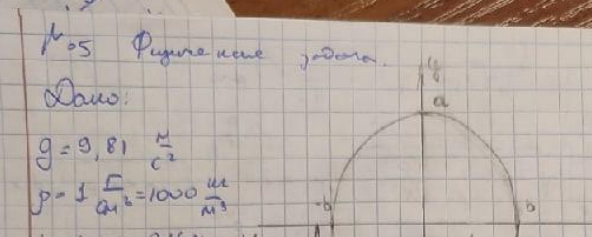 №5 Физическая задача.
y
Дано:
a
g = 9,81 м/с²
ρ = 1 г/см³ = 1000 кг/м³
-b b